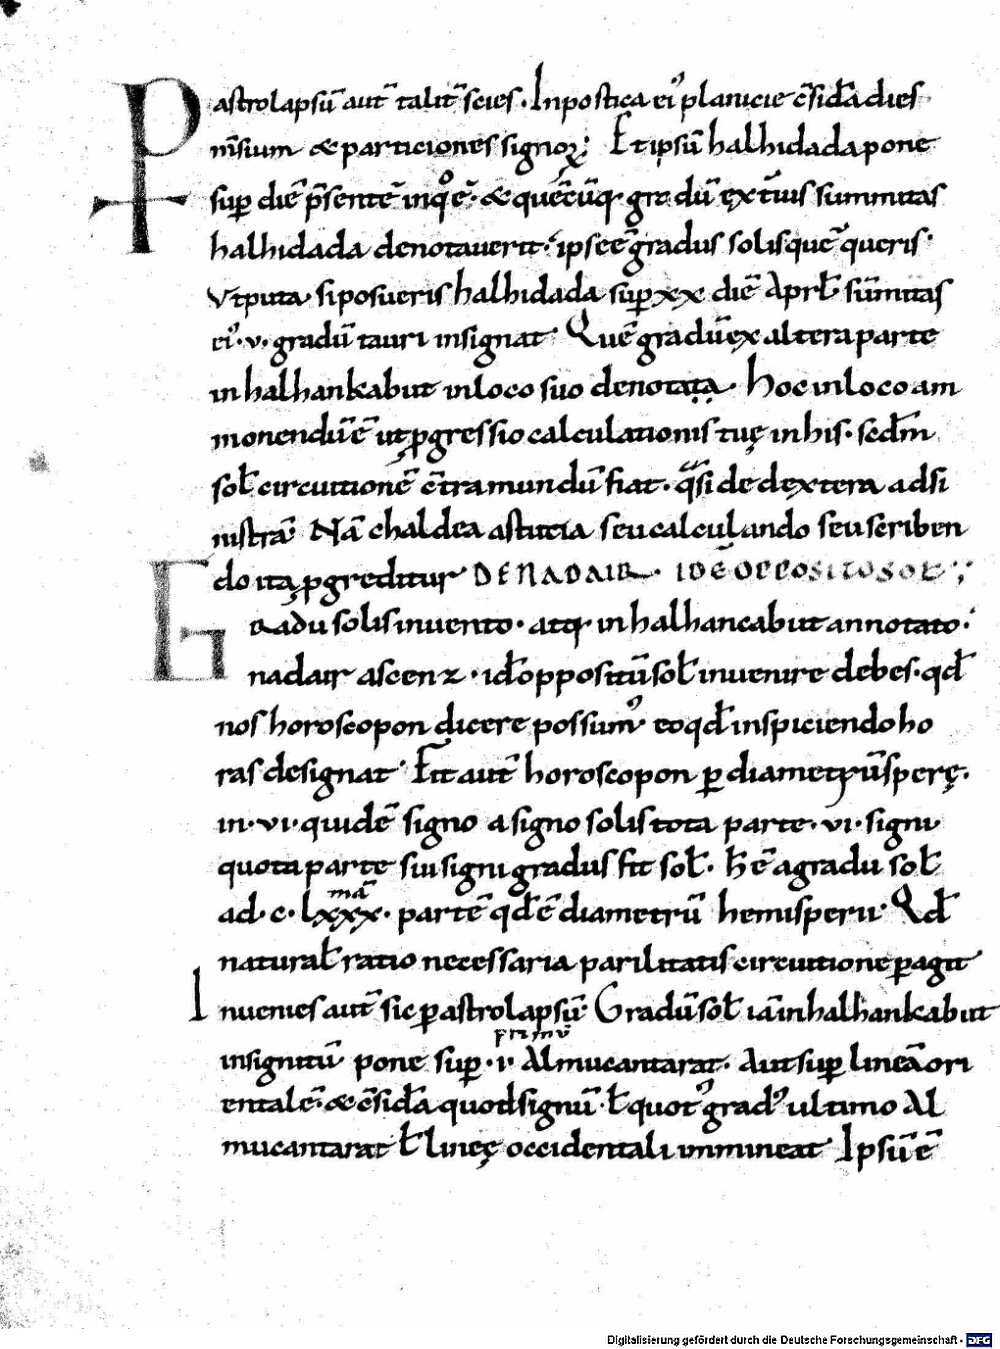 P astrolapsū aut̄ talit̄ scies. In postica ei᾽ planicie c̄sid̄a dies
m̄sium & particiones signoꝝ; Et ipsū halhidada pone
suꝑ diē p̄sentē in qͦ ē. & quēcūq; gradū ext̄ius summitas
halhidada denotauerit. ipse ē gradus solis quē queris.
Vtputa. si posueris halhidada suꝑ xx diē Aprl̄ sūmitas
ei᾽. v. gradū tauri insignat. Quē gradū ex altera parte
in halhankabut in loco suo denota. Hoc in loco am
monendū ē ut ꝓgressio calculationis tuę in his. scd̄m
sol̄ circuitionē c̄tra mundū fiat. q̄si de dextera ad si
nistrā. Nā chaldea astucia seu calculando seu scriben
do ita ꝓgreditur DE NADAIR. ID Ē OPPOSITO SOL̄;
G Radu solis inuento. atq; in halhancabut annotato.
nadair ascenz. id̄ oppositū sol̄ inuenire debes. qd̄
nos horoscopon dicere possum᾽ eo qd̄ inspiciendo ho
ras designat. Fit aut̄ horoscopon ꝑ diametrū sperę.
in. vi. quidē signo a signo solis tota parte. vi. signi
quota parte sui signi gradus fit sol̄. h̄ ē a gradu sol̄
mā
ad. c. lxxx. partē qd̄ ē diametrū hemisperii. Qd̄
natural̄ ratio necessaria parilitatis circuitione ꝑagit
Inuenies aut̄ sic ꝑ astrolapsū. Gradū sol̄ iā in halhankabut
primū
insignitū pone suꝑ. i. Almucantarat. Aut suꝑ lineā ori
entalē. & c̄sid̄a quod signū. l̄ quot᾽ grad᾽ ultimo Al
mucantarat l̄ lineę occidentali immineat. Ipsū ē
Digitalisierung gefördert durch die Deutsche Forschungsgemeinschaft - DFG